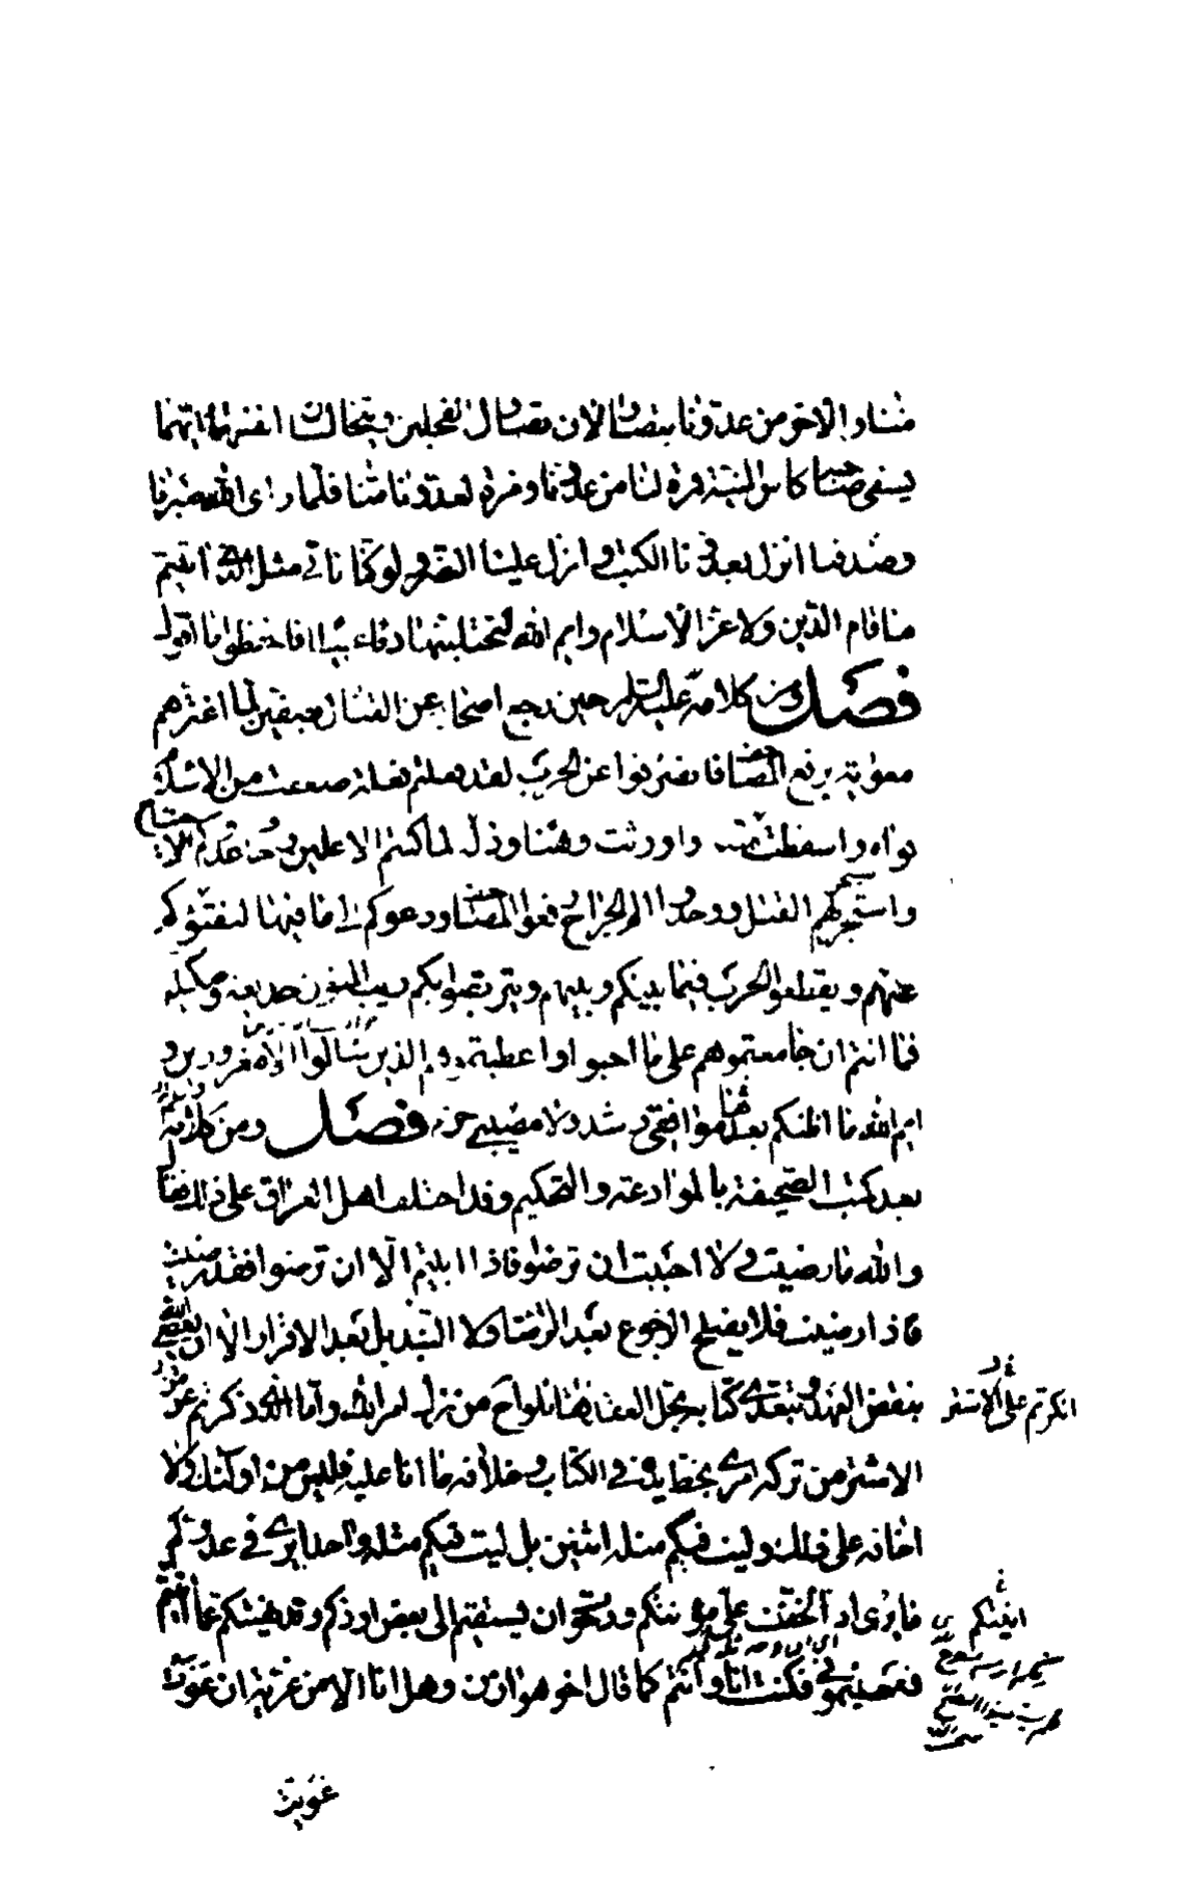 منا والاخر من عدونا يتصاولان تصاول الفحلين ويتخالسان انفسهما ايهما
يسقي صاحبه كاس المنية فمرة لنا من عدونا ومرة لعدونا منا فلما راى الله صبرنا
وصدقنا انزل بعدونا الكبت وانزل علينا النصر ولو كنا ناتي مثل الذي اتيتم
ما قام الدين ولا عز الاسلام وايم الله لتحتلبنها دماء عبيطا فاحفظوا ما اقول
فصل ومن كلامه عليه السلام حين رجع اصحابه عن القتال بصفين لما اغترهم
معوية برفع المصاحف فانصرفوا عن الحرب لقد فعلتم فعلة ضعضعت من الاسلام
قواه واسقطت منته واورثت وهنا وذلة لما كنتم الاعلين وخاف عدوكم الاجتياح
واستحر بهم القتل ووجدوا الم الجراح رفعوا المصاحف ودعوكم الى ما فيها ليفتؤكم
عنهم ويقطعوا الحرب فيما بينكم وبينهم ويتربصوا بكم ريب المنون خديعة ومكيدة
فما انتم ان جامعتموهم على ما احبوا واعطيتموهم الذين سالوا الا مغرورين و
ايم الله ما اظنكم بعدها موافقي رشد ولا مصيبي حزم فصل ومن كلامه
بعد كتب الصحيفة بالموادعة والتحكيم وقد اختلف اهل العراق على ذلك فقال
والله ما رضيت ولا احببت ان ترضوا فاذا ابيتم الا ان ترضوا فقد رضيت
فاذا رضيت فلا يصلح الرجوع بعد الرضا ولا التبديل بعد الاقرار الا ان يعصى الله
بنقض العهد ويتعدى كتابه بحل العقد فقاتلوا ح من ترك امر الله واما الذي ذكرتم عن
انكرتم على الاشتر
الاشتر من تركه امري بخط يده في الكتاب وخلافه ما انا عليه فليس من اولئك ولا
اخافه على ذلك وليت فيكم مثله اثنين بل ليت فيكم مثله واحدا يرى في عدوكم
ما يرى اذا لخفت علي مؤنتكم ورجوت ان يستقيم لي بعض اودكم وقد نهيتكم عما اتيتم
اتيتكم
فعصيتموني فكنت انا وانتم كما قال اخو هوازن وهل انا الا من غزية ان غوت
غويت